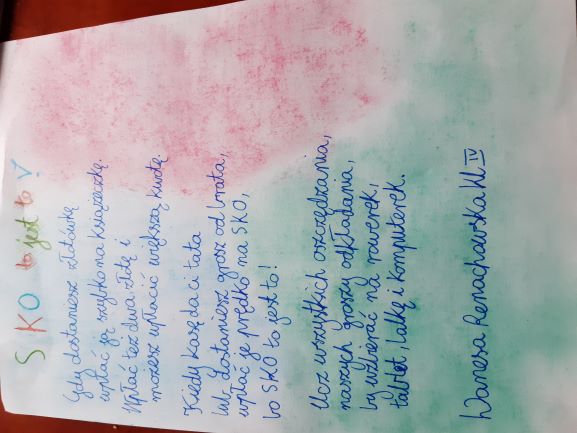 SKO to jest to!
Gdy dostaniesz złotówkę
wpłać ją szybko na książeczkę.
Wpłać też dwa złote i
możesz wpłacić większą kwotę.
Kiedy kasę da ci tata
lub dostaniesz grosz od brata,
wpłać je prędko na SKO,
bo SKO to jest to!
Ucz wszystkich oszczędzania,
naszych groszy odkładania,
by uzbierać na rowerek,
tablet, lalkę i komputerek.
Wanesa Renachowska kl IV